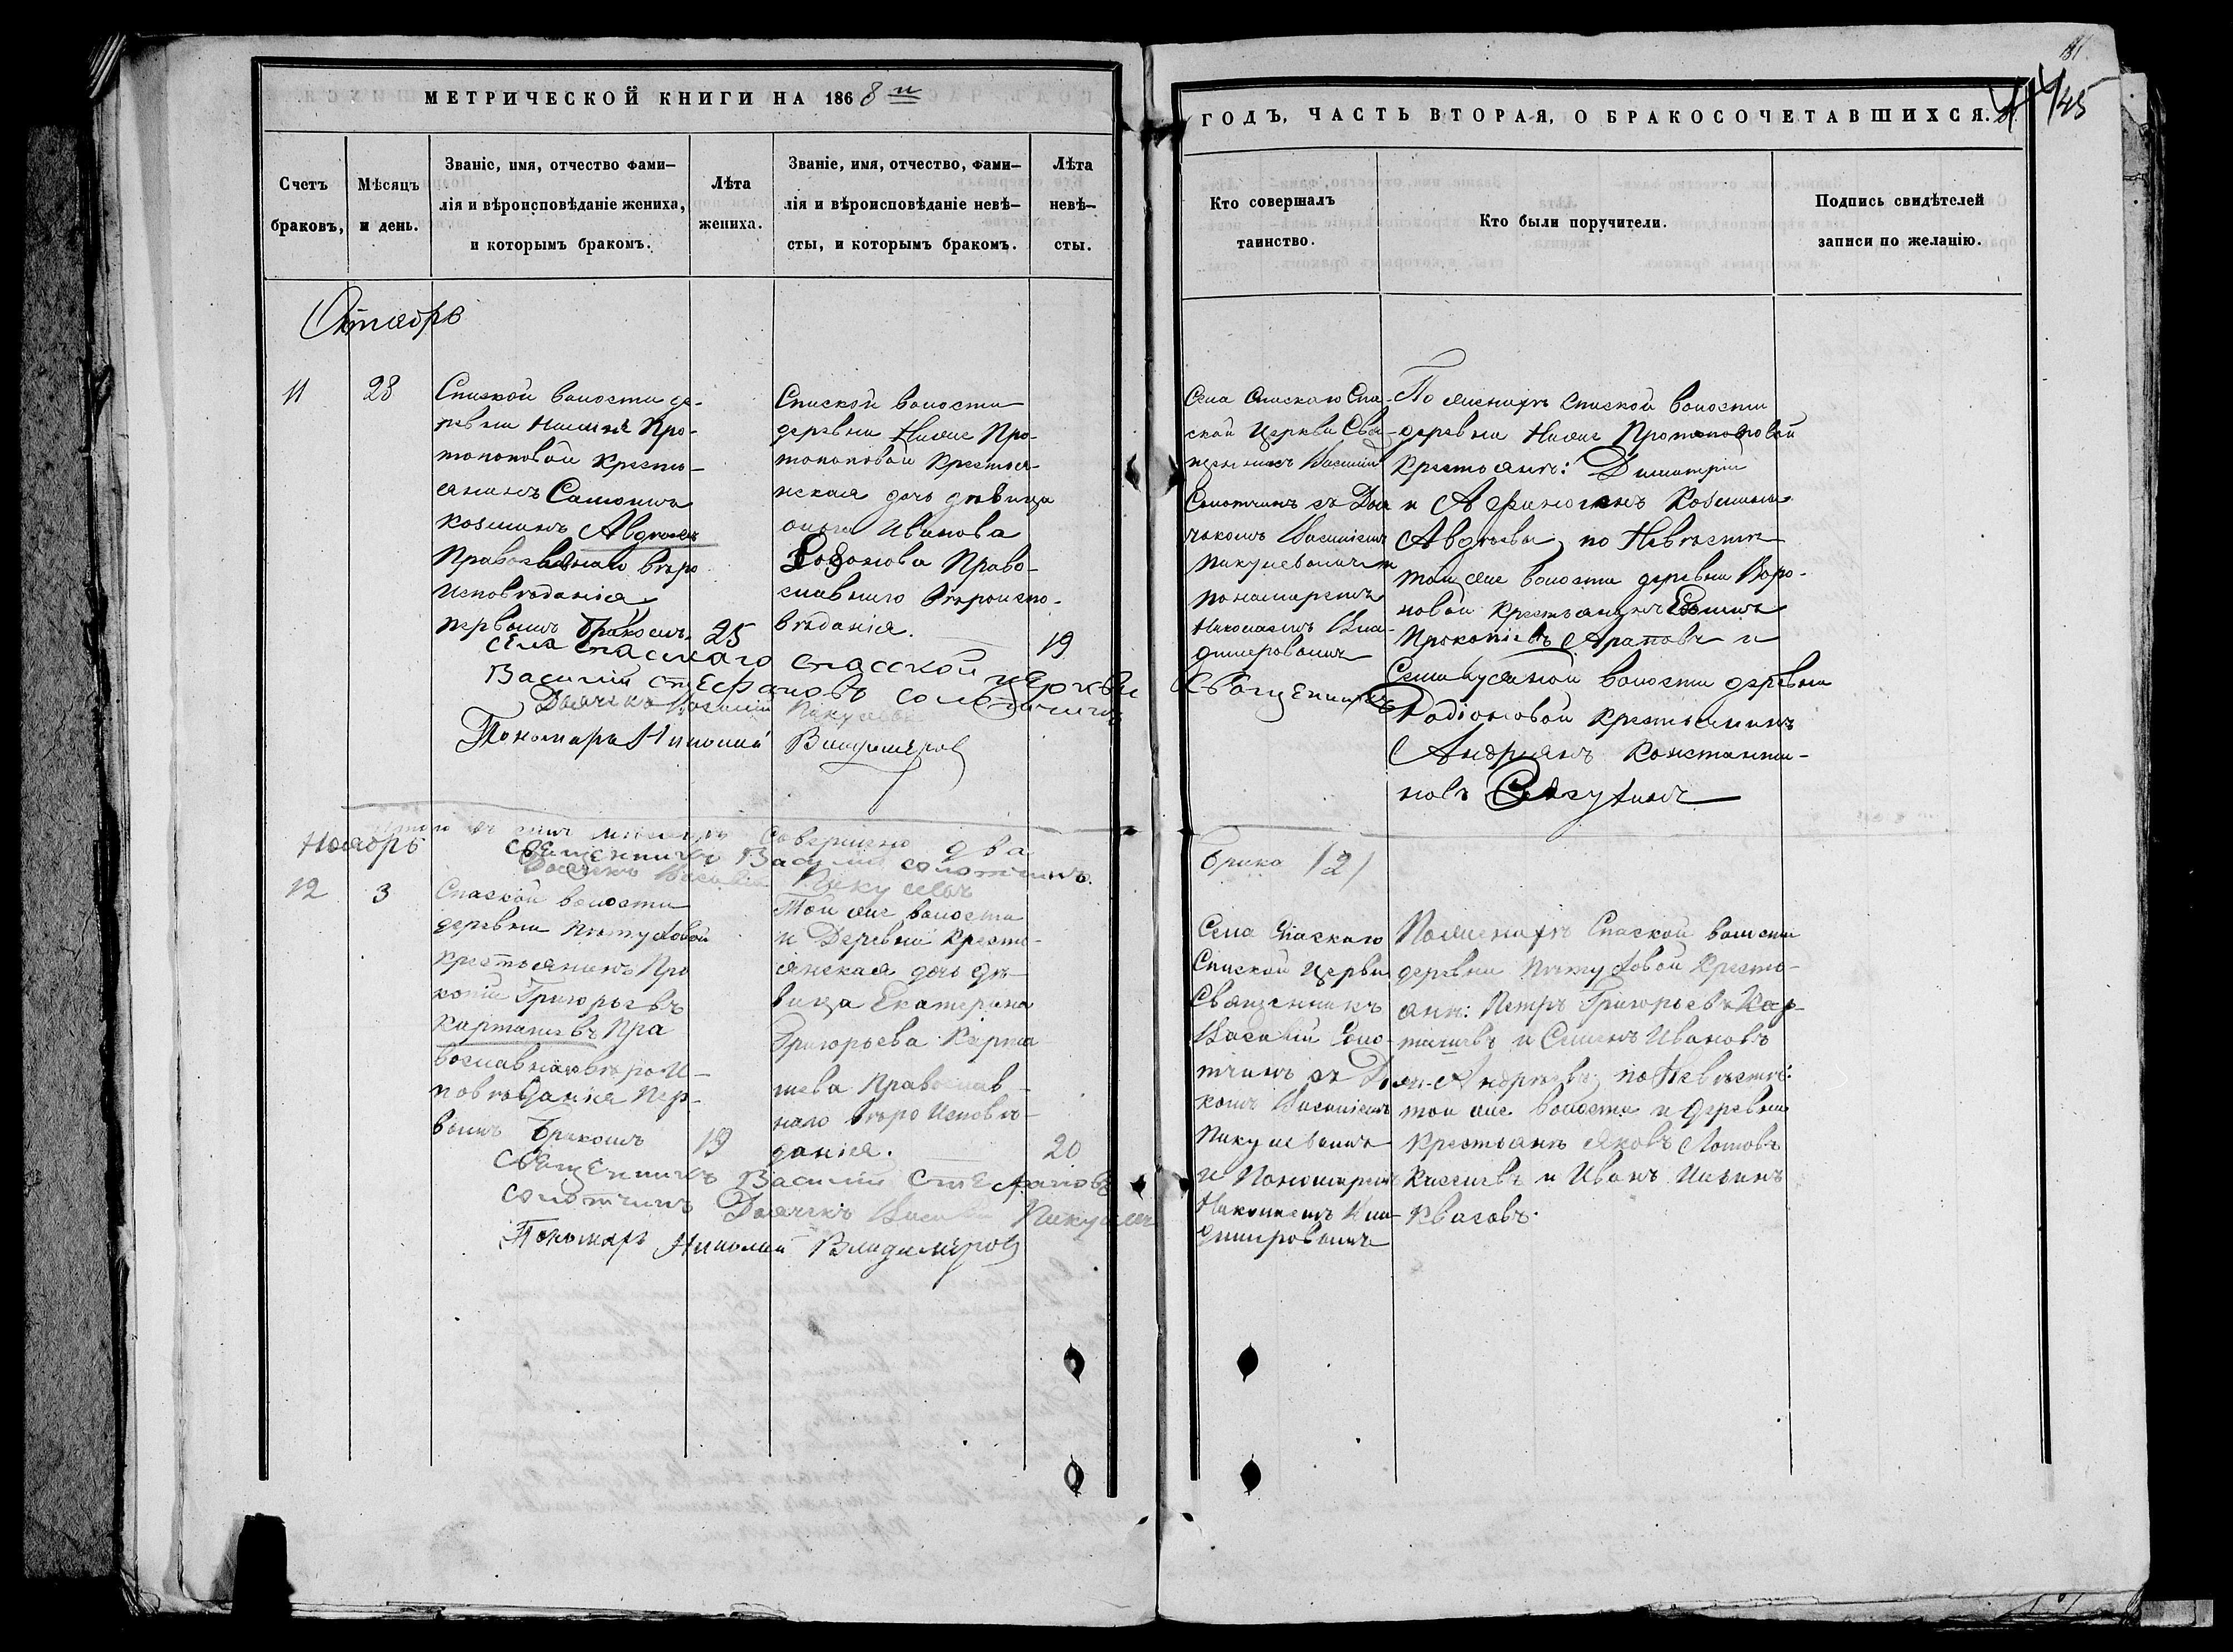 МЕТРИЧЕСКОЙ КНИГИ НА 1868й
Счетъ браковъ,
Мѣсяцъ и день.
Званіе, имя, отчество фами-
лія и вѣроисповѣданіе жениха,
и которымъ бракомъ.
Лѣта
жениха.
Званіе, имя, отчество, фами-
лія и вѣроисповѣданіе невѣ-
сты, и которымъ бракомъ.
Лѣта
невѣ-
сты.
11
28
Спаской волости де-
ревни Ниже Про-
топоповой Кресть-
янинъ
Козминъ Авдѣевъ
Православнаго вѣро
исповѣданія
первымъ бракомъ
25
Спаской волости
деревни Ниже Про-
топоповой Крестья-
нская дочь дѣвица
Иванова
Право-
славнаго вѣроиспо-
вѣданія.
19
Села Спаскаго Спасской церкви
Василий Стефановъ Солотчинъ
Дьячекъ Василий Пикулевъ
Пономарь Николай Владимеров
Ноябрь
Итого въ семъ месяцѣ совершено два
Священникъ Василий Солотчинъ.
Дьячекъ Василий Пикулевъ
12
3
Спаской волости
деревни
крестьянинъ Про
копий Григорьевъ
Карташевъ Пра
вославнаго вѣроИ-
повѣданія Пер-
вымъ бракомъ
19
Той же волости
и Деревни Кресть-
янская дочь дѣ-
вица Екатерина
Григорьева Карта
шева Православ-
наго вѣро Исповѣ-
данія.
20
Священникъ Василий Стефановъ
Солотчинъ Дьячекъ Василий Пикулевъ
Пономарь Николай Владимеров
ГОДЪ, ЧАСТЬ ВТОРАЯ, О БРАКОСОЧЕТАВШИХСЯ.
145
Кто совершалъ
таинство.
Кто были поручители.
Подпись свидѣтелей
записи по желанію.
Села Спаскаго Спа-
ской Церкви Свя-
щенникъ Василий
Солотчинъ съ Дья
чкомъ Василіемъ
Пикулевымъ и
пономаремъ
Николаемъ Вла-
димеровымъ
Священникъ
По женихѣ Спаской волости
деревни Ниже Протопоповой
Крестьянъ: Димитрій
и Афиногенъ Козмины
Авдѣевы, по Невѣстѣ
той же волости деревни Воро-
новой крестьянинъ
Прокопіевъ Араповъ и
волости деревни
Родіоновой крестьянинъ
Андриянъ Константи-
новъ
Брака /2/
Села Спаскаго
Спаской Церкви
Священникъ
Василий Соло-
тчинъ съ Дьяч-
комъ Василіемъ
Пикулевымъ
и Пономаремъ
Николаемъ Вла-
димеровымъ
По женихѣ Спаской волости
деревни Кресть-
яни: Петръ Григорьевъ Кар-
ташевъ и Семенъ Ивановъ
Андрѣевъ; по Невѣстѣ:
той же волости и деревни
Крестьянъ Яковъ
и Иванъ Ильинъ
Квасовъ.